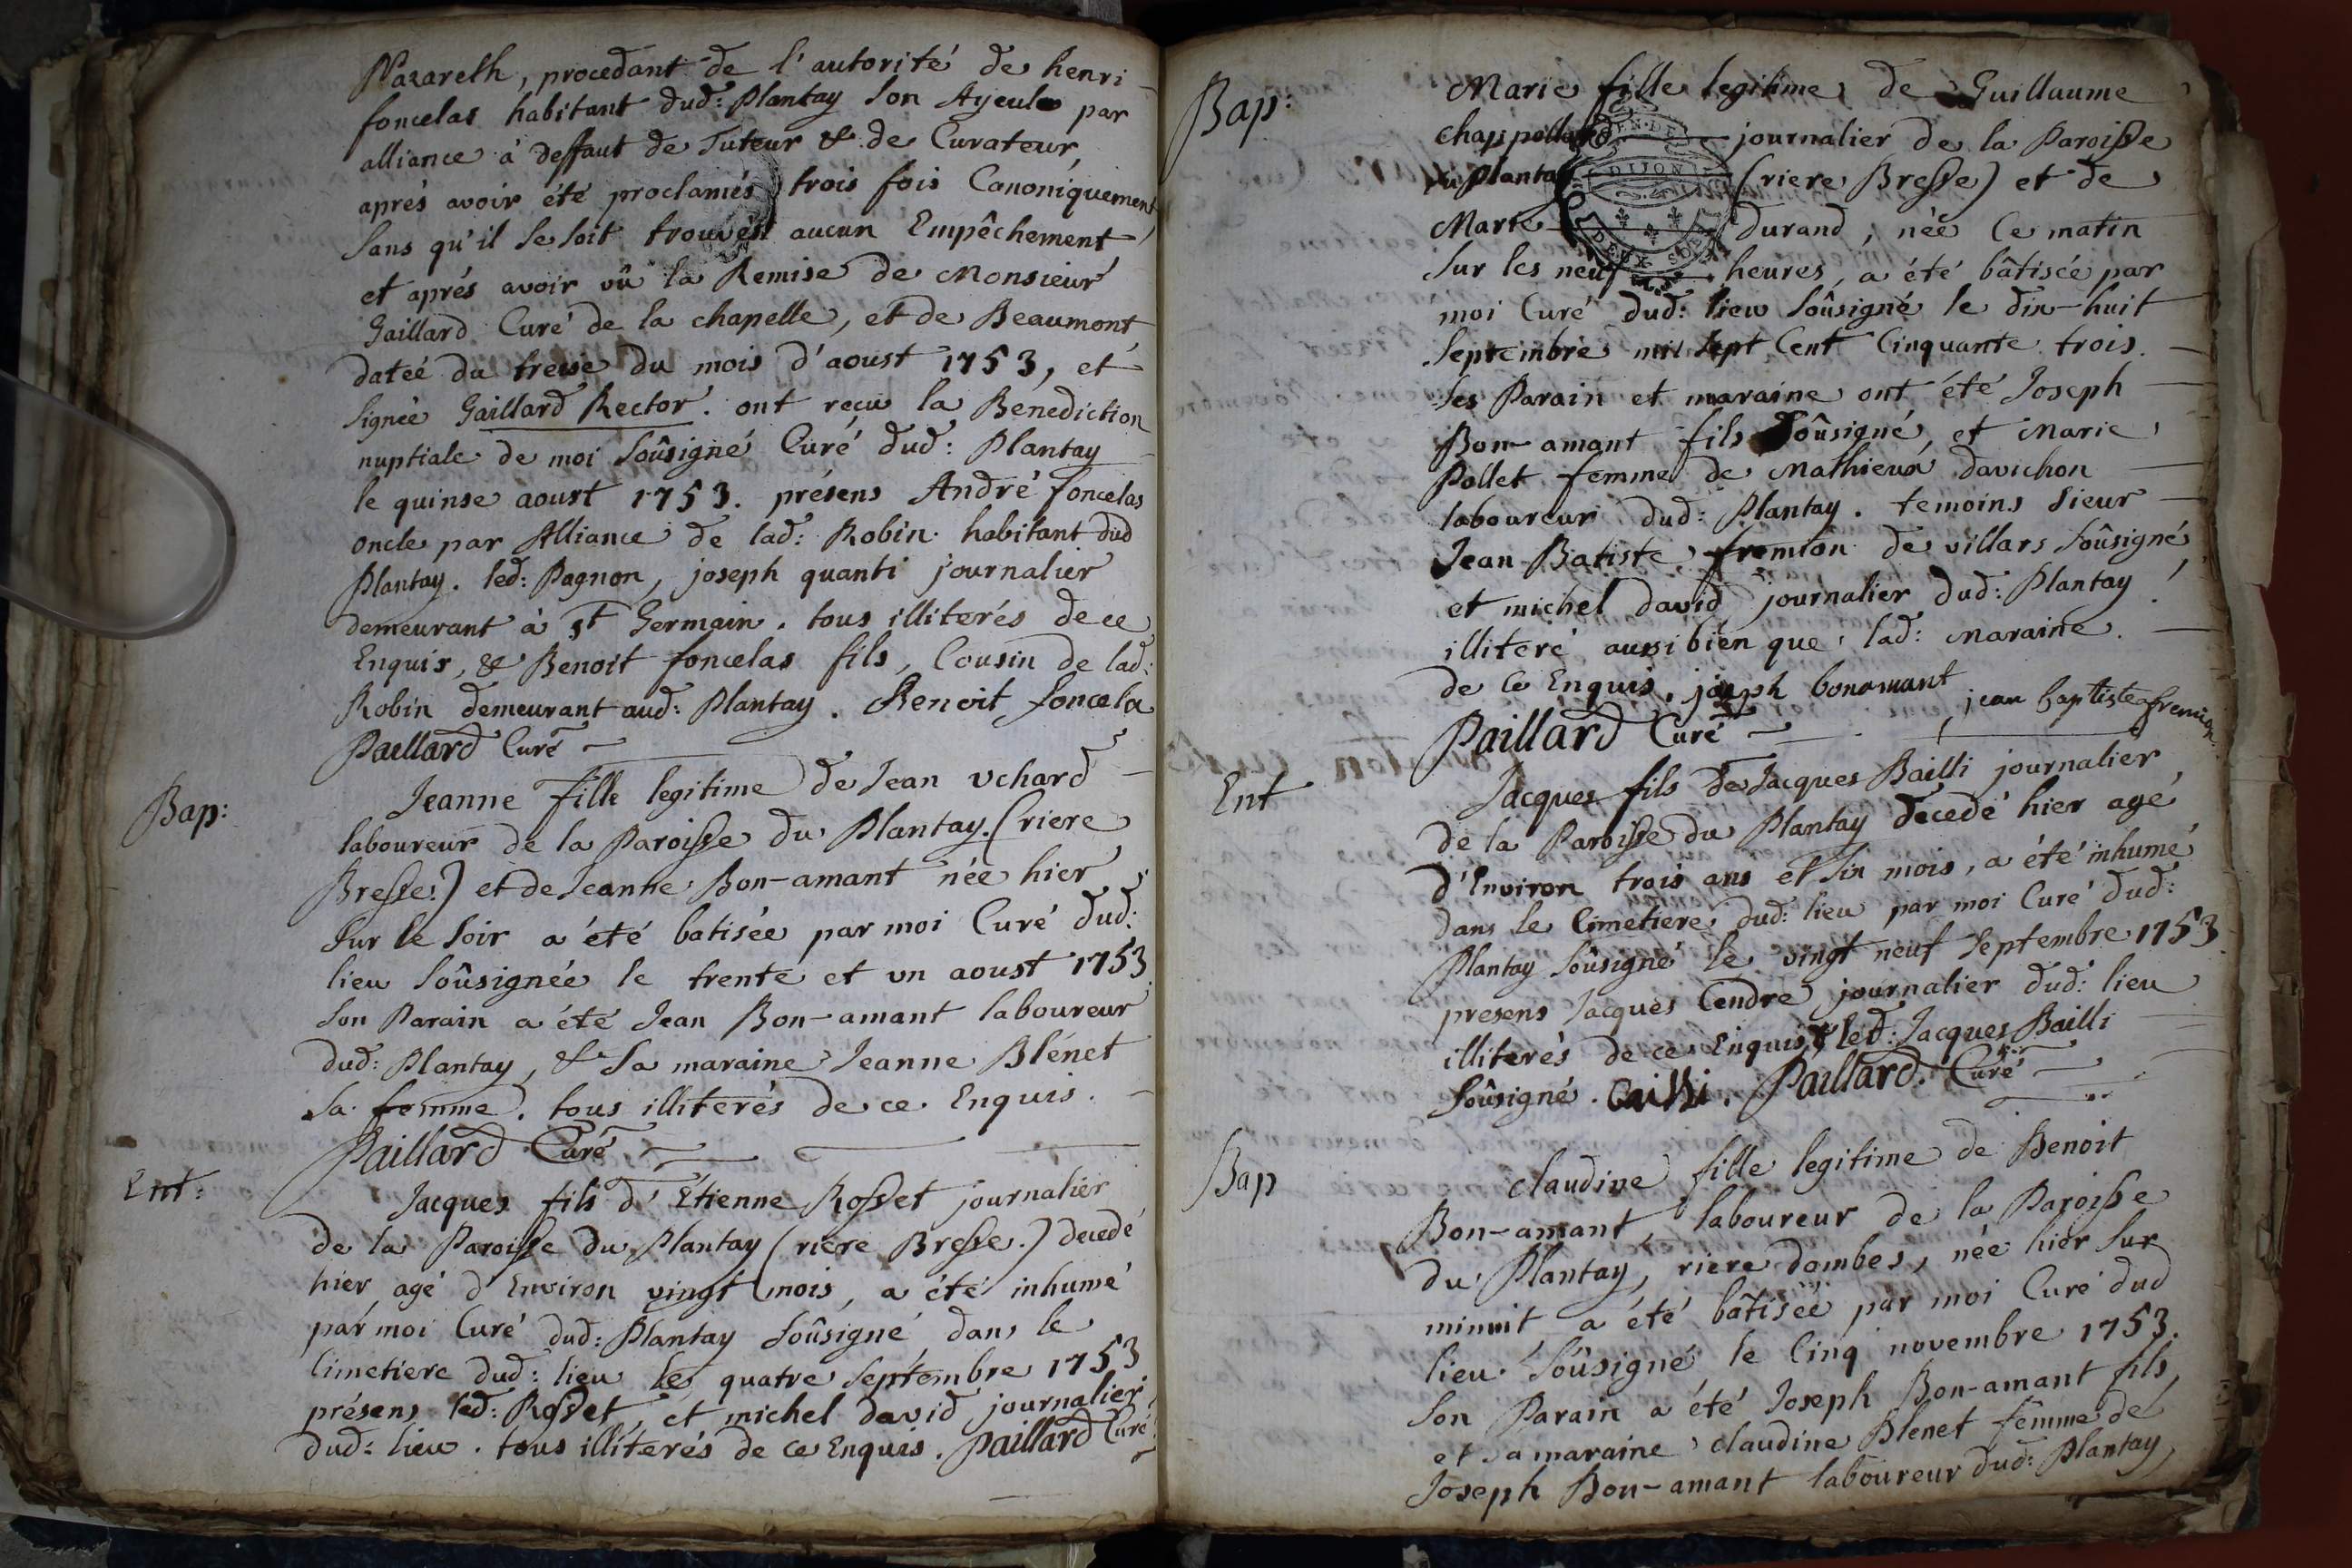 Nazareth, procedant de l'autorité de henri
foncelas habitant dud: Plantay son Ayeul par
alliance à deffaut de Tuteur & de Curateur,
aprés avoir été proclamés trois fois Canoniquement
sans qu'il se soit trouvés aucun Empêchement,
et aprés avoir vû la Remise de Monsieur
Gaillard Curé de la chapelle, et de Beaumont,
datée du treise du mois d'aoust 1753, et
signée Gaillard Rector. ont reçu la Benediction
nuptiale de moi soûsigné Curé dud: Plantay
le quinse aoust 1753. présens André foncelas
oncle par Alliance de lad: Robin habitant dud
Plantay. led: Pagnon, joseph quanti journalier
demeurant à st Germain. tous illiterés de ce
Enquis, & Benoit foncelas fils, Cousin de lad:
Robin demeurant aud: Plantay. Benoit foncela
Paillard Curé
Bap:
Jeanne fille legitime de Jean vchard
laboureur de la Paroisse du Plantay. (riere
Bresse.) et de Jeanne Bon-amant née hier
sur le soir a été batisée par moi Curé dud:
lieu soûsignée le trente et un aoust 1753
son Parain a été Jean Bon-amant laboureur
dud: Plantay, & sa maraine Jeanne Blénet
sa femme. tous illiterés de ce Enquis.
Paillard Curé
Ent:
Jacques fils d'Étienne Rosset journalier
de la Paroisse du Plantay (riere Bresse.) decedé
hier agé d'Environ vingt mois, a été inhumé
par moi Curé dud: Plantay soûsigné, dans le
Cimetiere dud: lieu le quatre septembre 1753
présens led: Rosset, et michel david journalier
dud: lieu. tous illiterés de ce Enquis. Paillard Curé
Bap:
Marie fille legitime de Guillaume
chappelland journalier de la Paroisse
du Plantay (riere Bresse) et de
Marie durand, née Ce matin
DIJON
DEUX SOLS
sur les neuf heures, a été bâtisée par
moi Curé dud: lieu soûsigné le dix-huit
septembre mil sept Cent Cinquante trois.
ses Parain et maraine ont été Joseph
Bon-amant fils soûsigné, et Marie
Pollet femme de Mathieu davichon
laboureur dud: Plantay. temoins sieur
Jean Batiste fremion de villars soûsigné,
et michel david journalier dud: Plantay
illiteré aussi bien que lad: Maraine.
de Ce Enquis. joseph bonamant
jean baptiste fremion
Paillard Curé
Ent
Jacques fils de Jacques Bailli journalier
de la Paroisse du Plantay decedé hier agé
d'Environ trois ans et six mois, a été inhumé
dans le Cimetiere dud: lieu par moi Curé dud:
Plantay soûsigné le vingt neuf septembre 1753
presens Jacques Cendre journalier dud: lieu
illiterés de ce Enquis & led: Jacques Bailli
soûsigné. Paillard Curé
Bap
claudine fille legitime de Benoit
Bon-amant laboureur de la Paroisse
du Plantay, riere dombes, née hier sur
minuit a été bâtisée par moi Curé dud
lieu soûsigné, le Cinq novembre 1753.
son Parain a été Joseph Bon-amant fils,
et sa maraine claudine Blenet femme de
Joseph Bon-amant laboureur dud: Plantay,